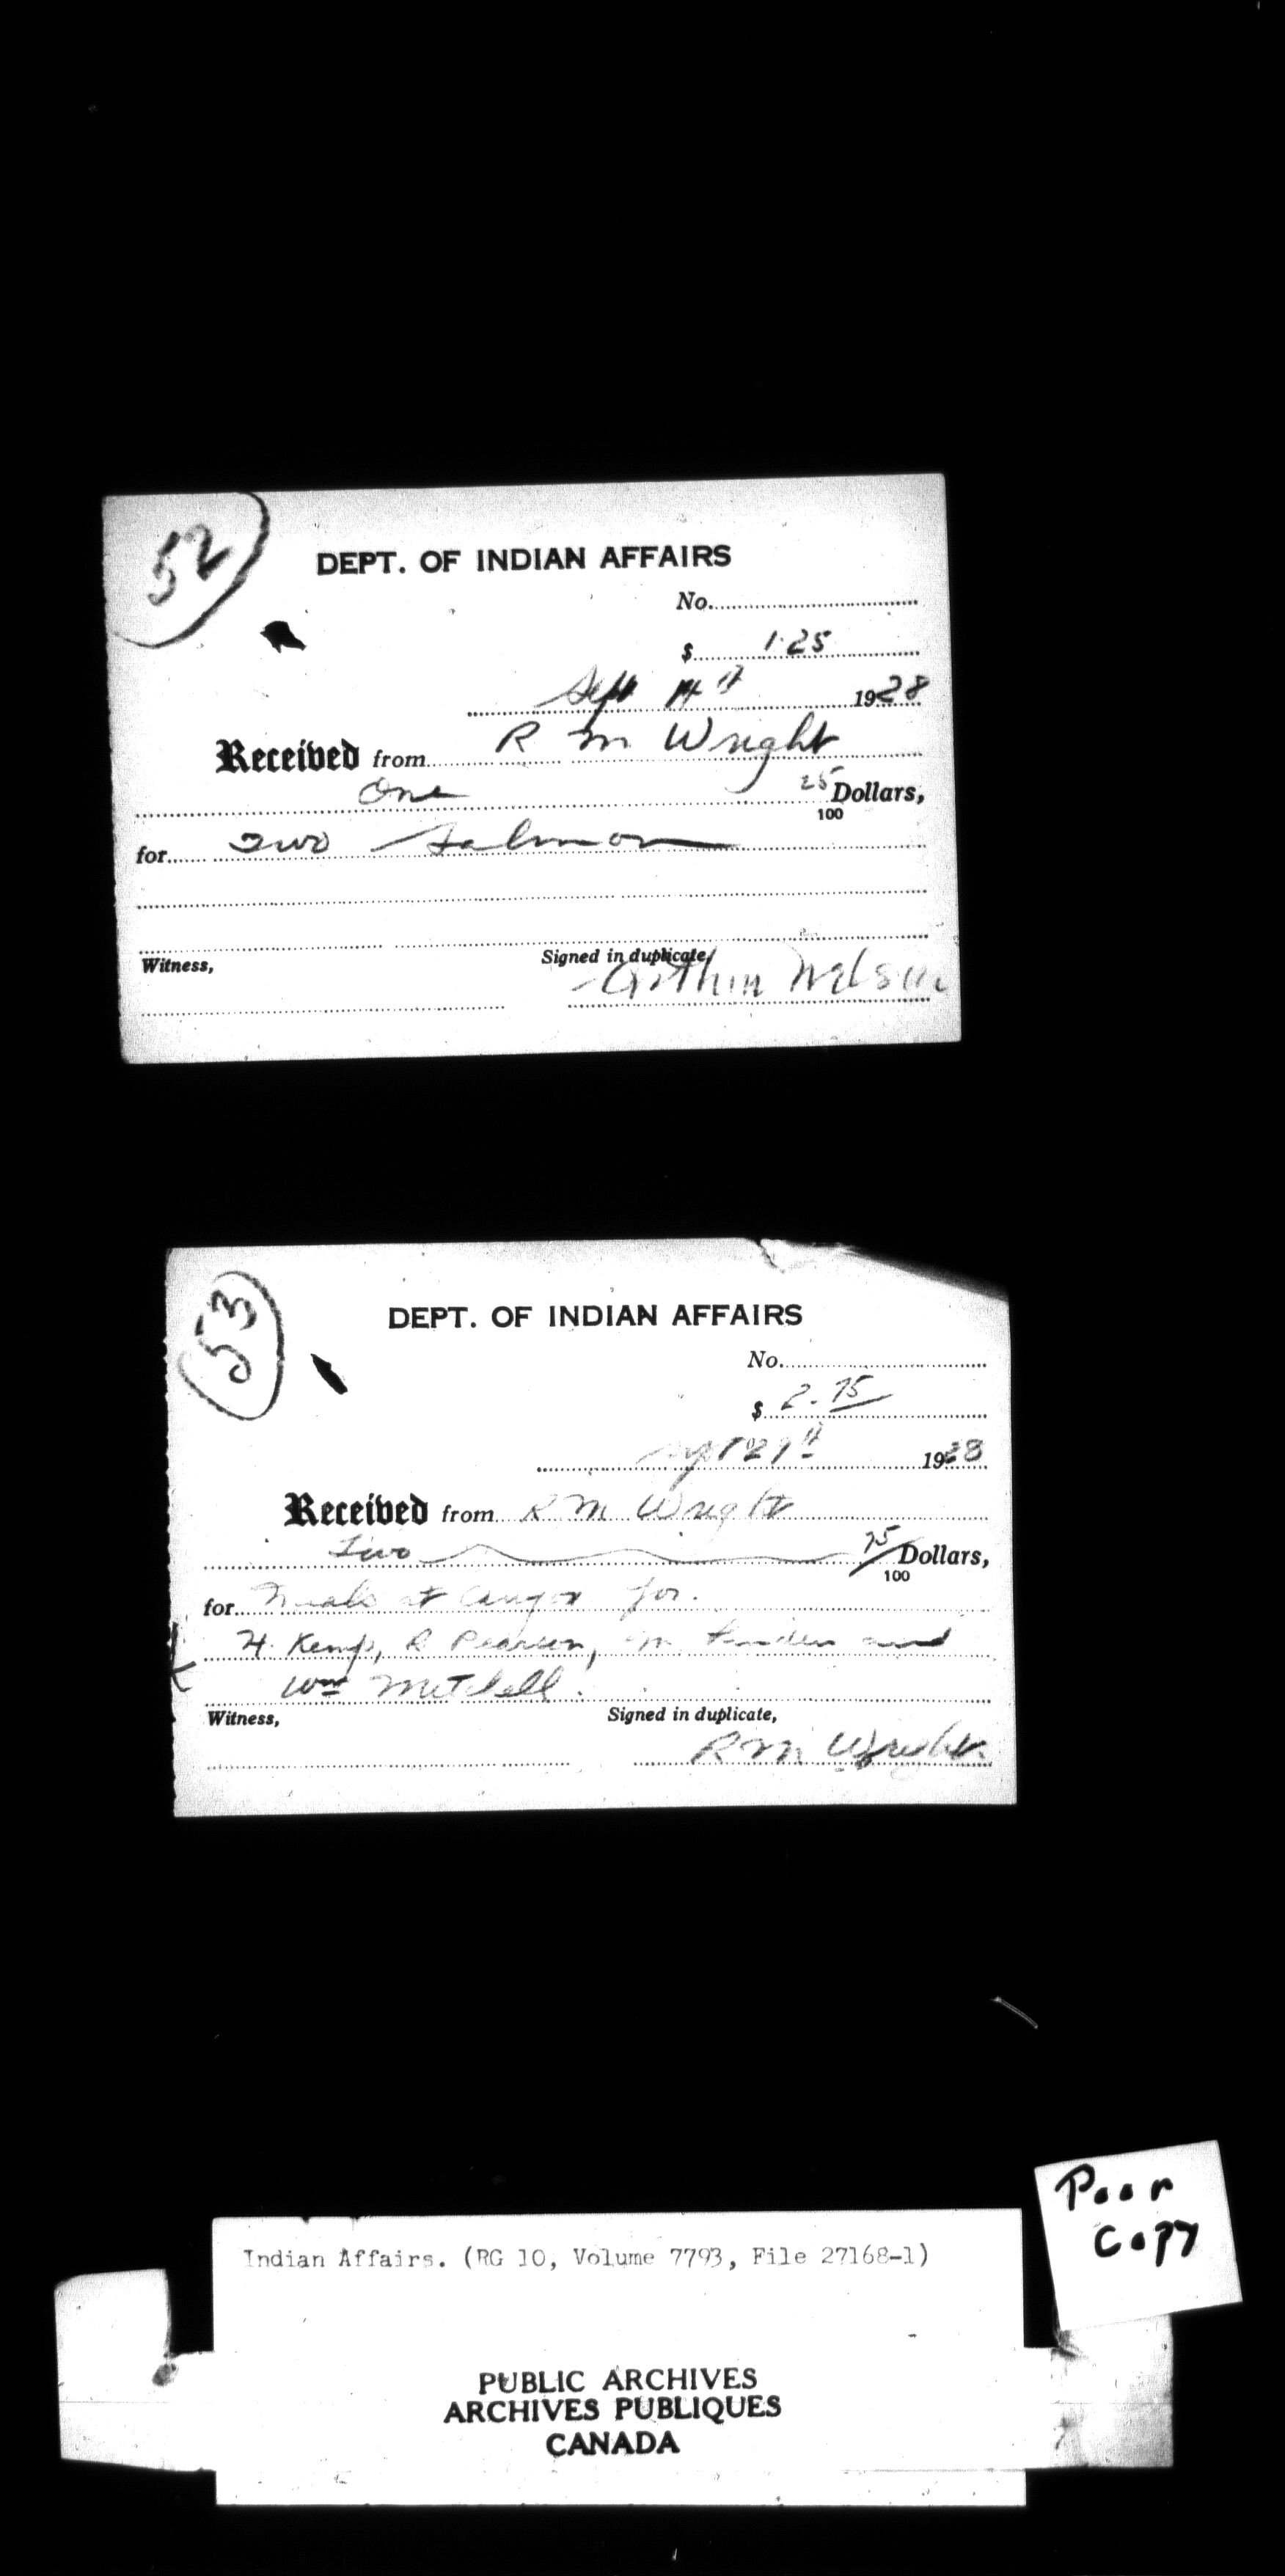 52
DEPT. OF INDIAN AFFAIRS
No.
$ 1.25
Sept 14th 1928
Received from R M Wright
One 25 Dollars,
100
for Two Salmon
Signed in duplicate,
Witness,
Arthur Nelson
53
DEPT. OF INDIAN AFFAIRS
No.
$ 2.75
Sept 29th 1928
Received from R M Wright
Two 75 Dollars,
100
for Meals at for.
H. Kemp, R Pearson, M. and
Wm Mitchell.
Witness, Signed in duplicate,
R M Wright.
Poor
Copy
Indian Affairs. (RG 10, Volume 7793, File 27168-1)
PUBLIC ARCHIVES
ARCHIVES PUBLIQUES
CANADA